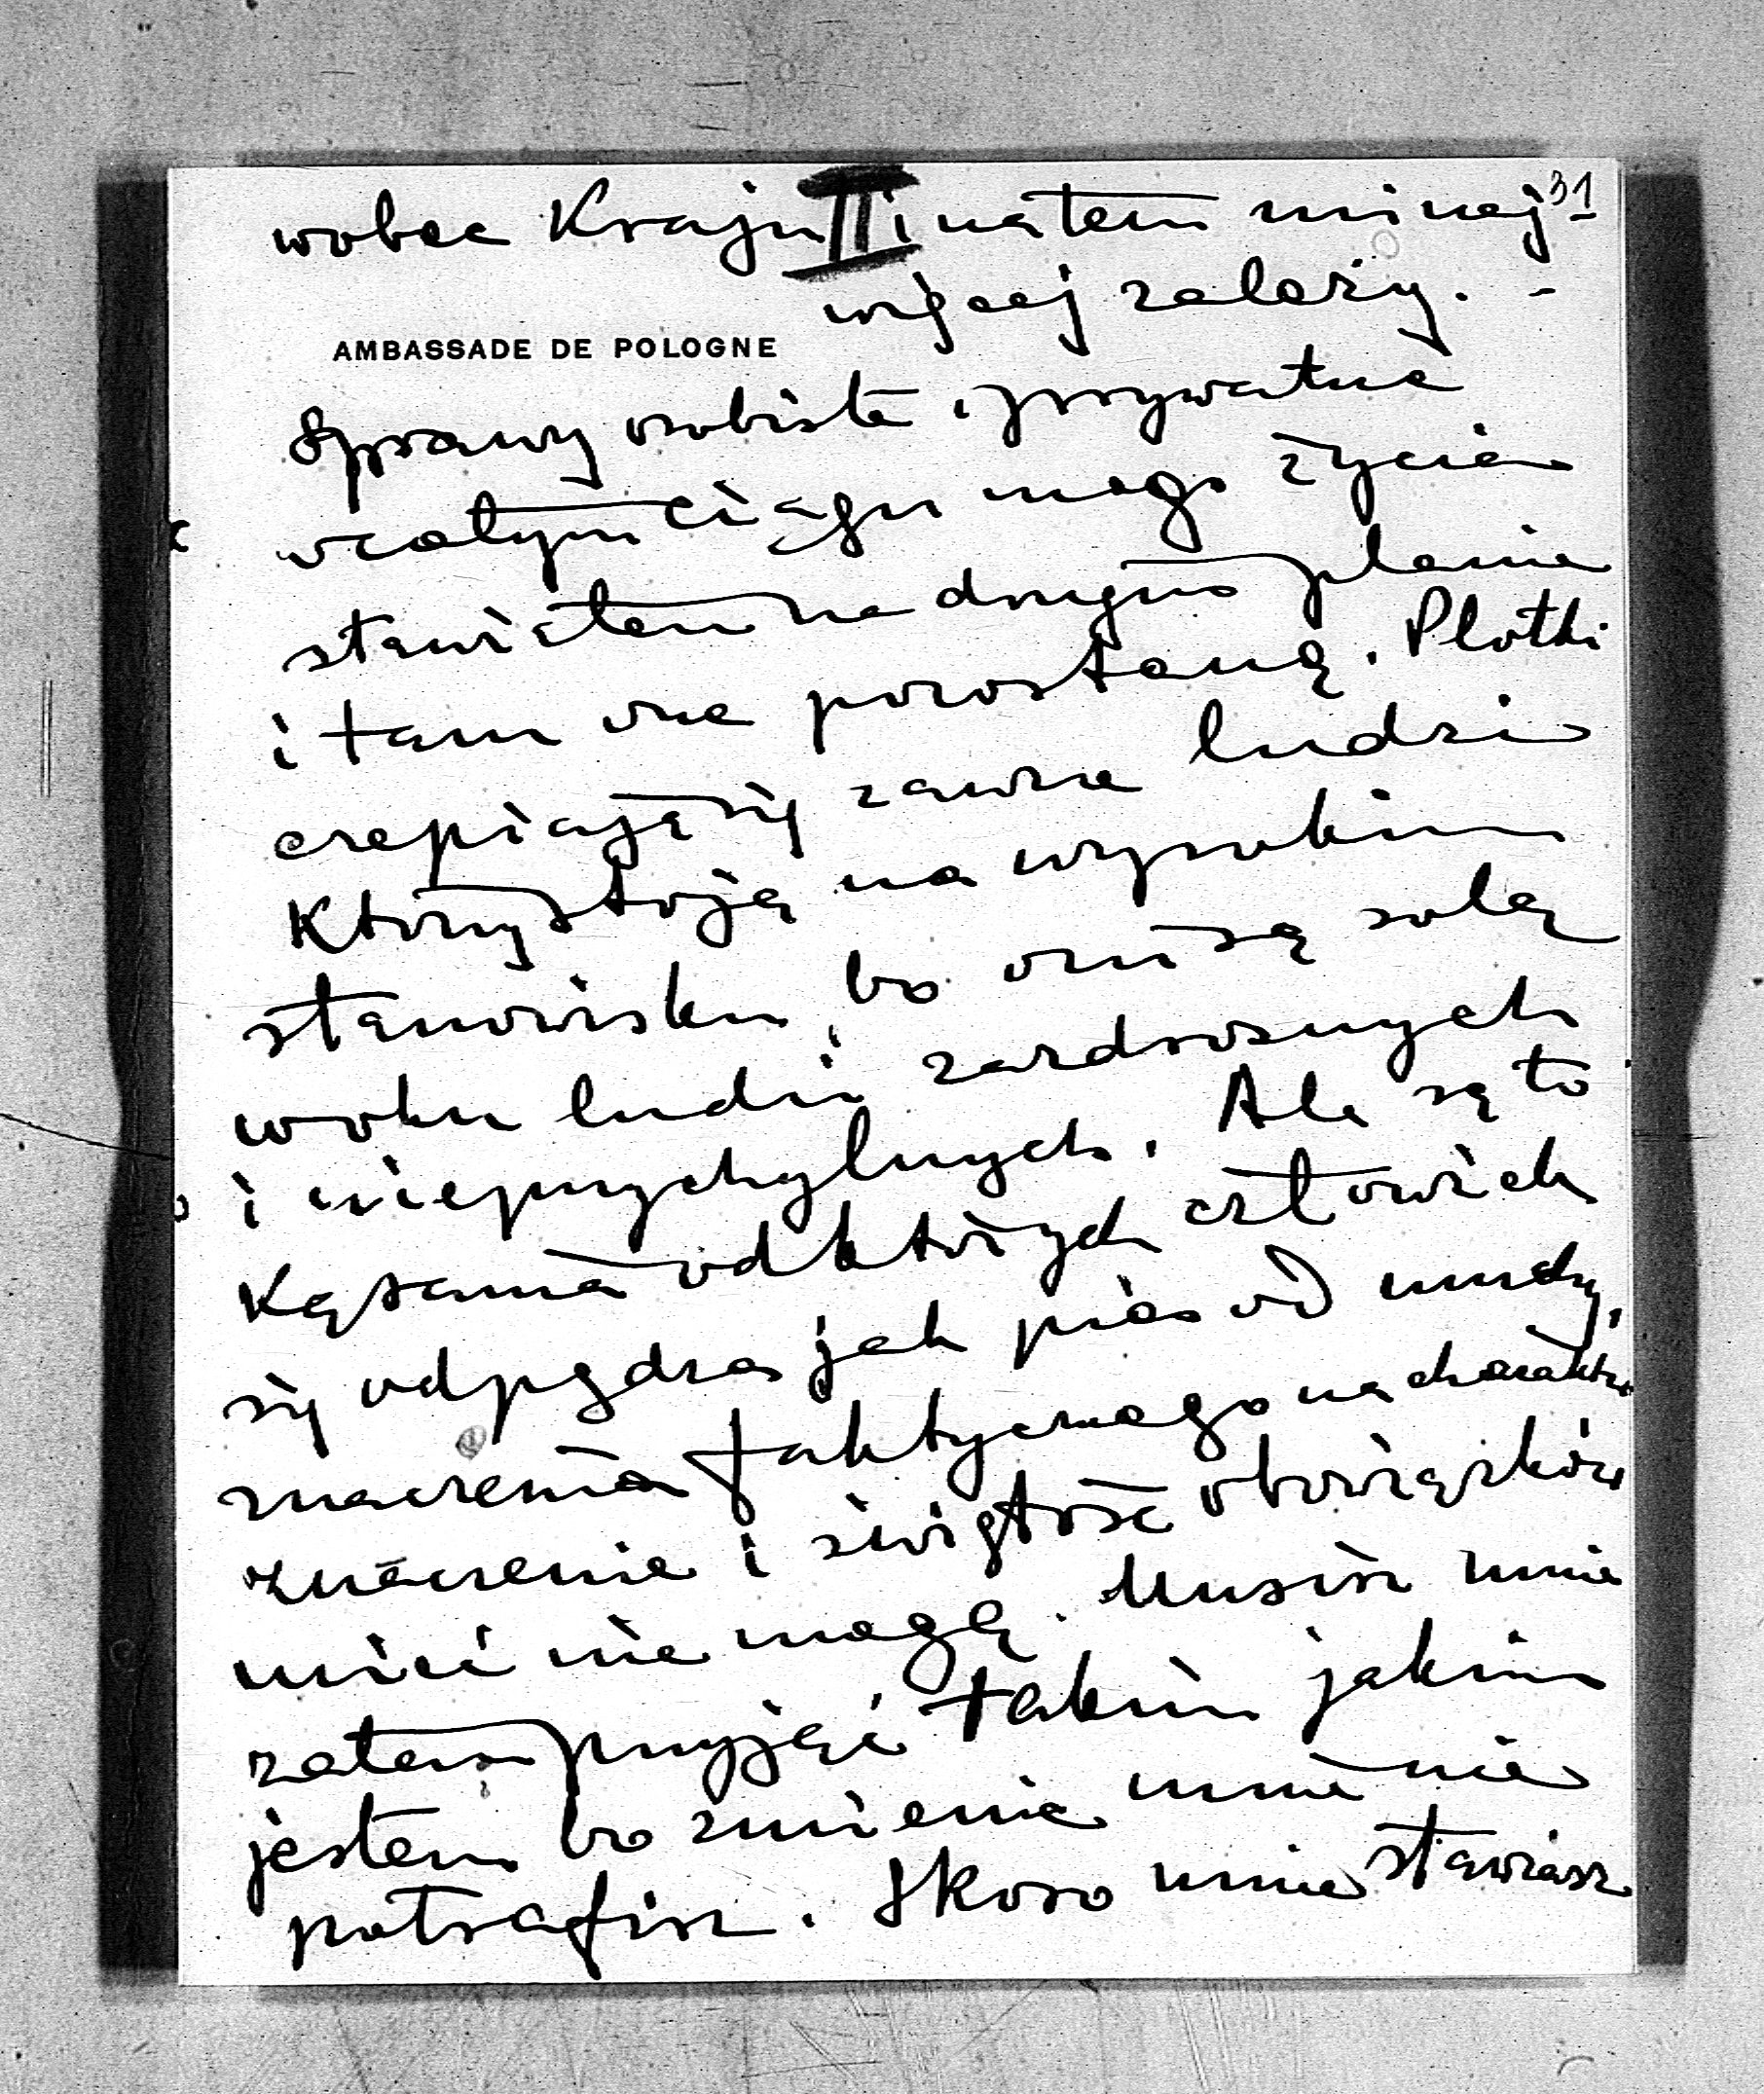 31
wobec Kraju II i na tem mi naj-
więcej zależy. -
AMBASSADE DE POLOGNE
Sprawy osobiste i prywatne
w całym ciągu mego życia
stawiałem na drugim planie
i tam one pozostaną. Plotki
czepiają się zawsze ludzi
którzy stoją na wysokim
stanowisku, bo oni są solą
w oku ludzi zazdrosnych
i nieprzychylnych. Ale są to
kąsania od których człowiek
się odpędza jak pies od muchy,
znaczenia faktycznego na charakter
znaczenie i świętość obowiązków
mieć nie mogą. Musisz mnie
zatem przyjąć takim jakim
jestem bo zmienić mnie nie
potrafisz. Skoro mnie stawiasz